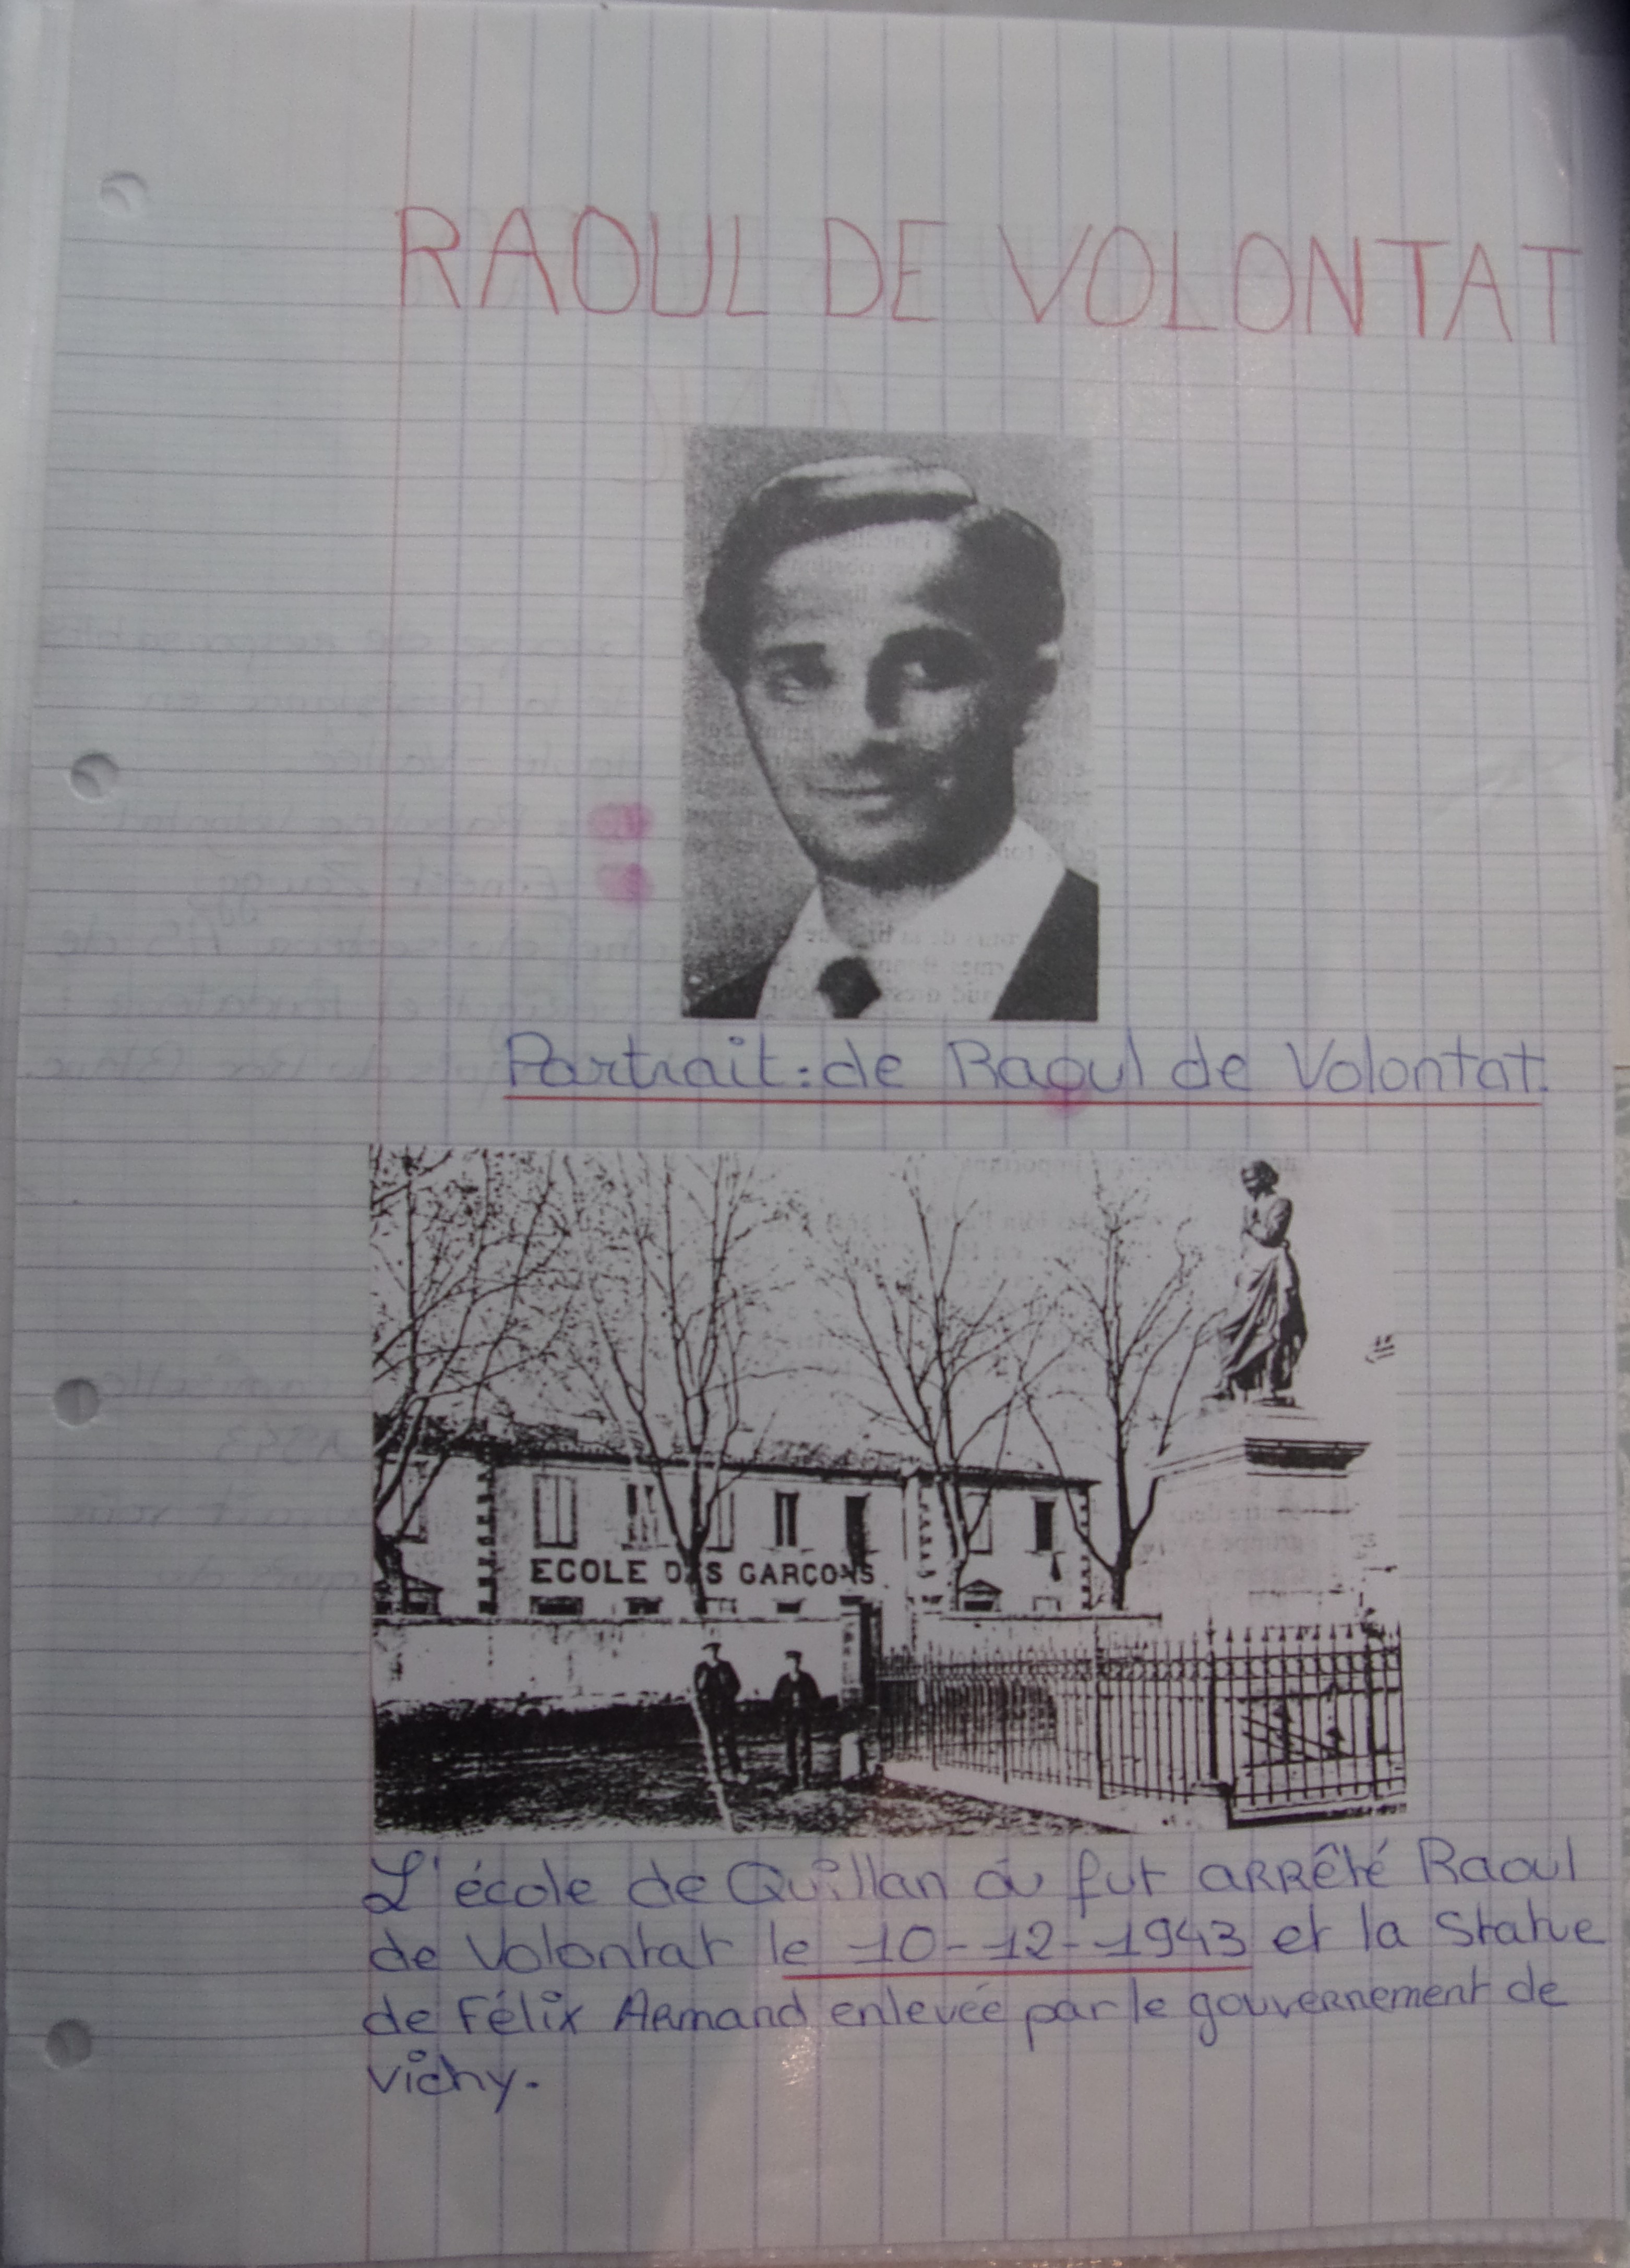 RAOUL DE VOLONTAT
Portrait: de Raoul de Volontat.
ECOLE DES GARÇONS
L'école de Quillan où fut arrêté Raoul
de Volontat le 10-12-1943 et la Statue
de Félix Armand enlevée par le gouvernement de
Vichy.